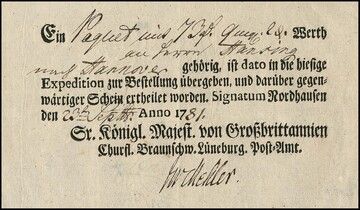 Ein Paquet mit 73 Werth
an Herrn Hansing
nach Hannover gehörig, ist dato in die hiesige
Expedition zur Bestellung übergeben, und darüber gegen-
wärtiger Schein ertheilet worden. Signatum Nordhausen
den 23ten Septbr. Anno 1781.
Sr. Königl. Majest. von Großbrittannien
Churfl. Braunschw. Lüneburg. Post-Amt.